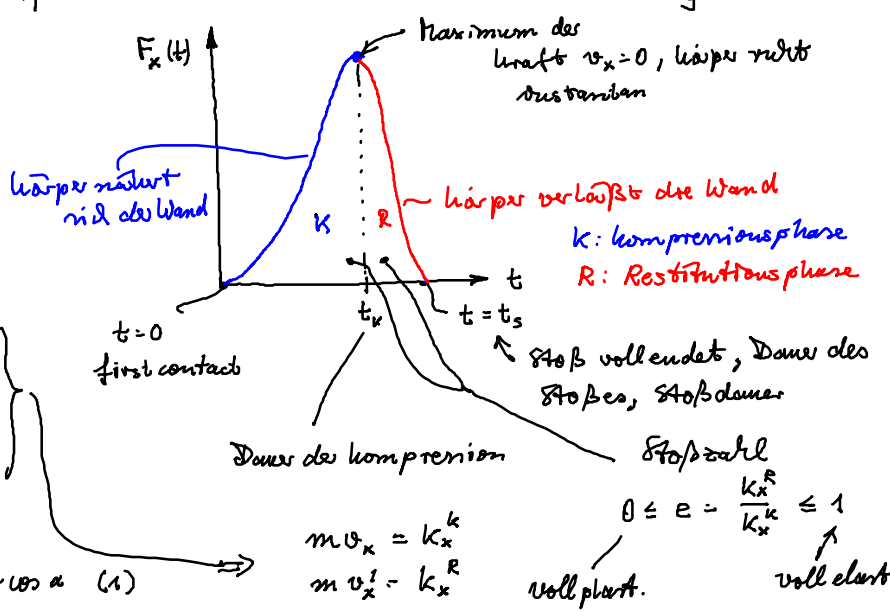 F_x(t)
Maximum der
Kraft v_x=0, Körper ruht
instantan
Körper nähert
sich der Wand
Körper verläßt die Wand
K
R
K: Kompressionsphase
R: Restitutionsphase
t
t=0
first contact
t_K
t=t_s
Stoß vollendet, Dauer des
Stoßes, Stoßdauer
Dauer der Kompression
Stoßzahl
0 ≤ e = K_x^R / K_x^K ≤ 1
m v_x = K_x^K
m v_x^1 = K_x^R
voll plast.
voll elast
cos α (1)